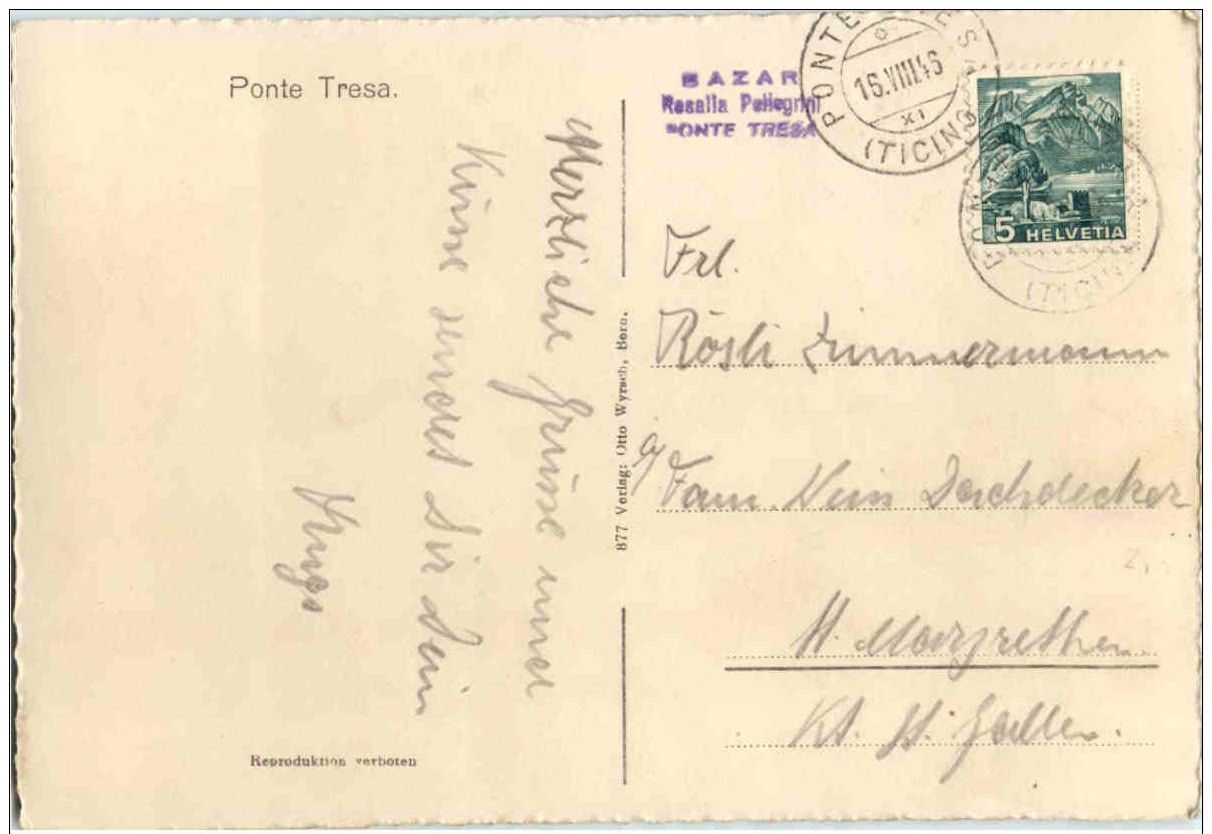 Ponte Tresa.
BAZAR
Rosalia Pellegrini
PONTE TRESA
PONTE TRESA
16.VIII.46
XI
(TICINO)
PONTE
(TICINO)
5 HELVETIA
Herzliche Grüsse und
Küsse sendet Dir Dein
Hugo
877 Verlag: Otto Wyrsch, Bern.
Frl.
Rösli Zimmermann
c/ Fam. Dachdecker
St. Margrethen
Kt. St. Gallen.
Reproduktion verboten